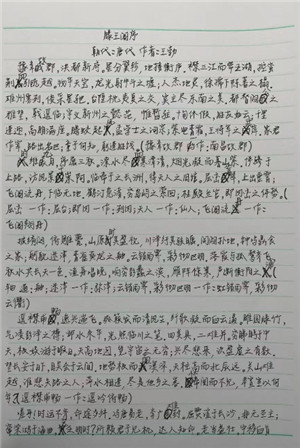 滕王阁序
朝代:唐代 作者:王勃
豫章故郡,洪都新府。星分翼轸,地接衡庐。襟三江而带五湖,控蛮
荆
物华天宝,龙光射牛斗之墟;人杰地灵,徐孺下陈蕃之榻。
雄州雾列,俊采星驰。台隍枕夷夏之交,宾主尽东南之美。都督阎公之雅
望,棨戟遥临;宇文新州之懿范,襜帷暂驻。十旬休假,胜友如云;千里
逢迎,高朋满座。腾蛟起凤,孟学士之词宗;紫电青霜,王将军之武库。家君
作宰,路出名区;童子何知,躬逢胜饯。(豫章故郡 一作:南昌故郡)
时维九月,序属三秋。潦水尽而寒潭清,烟光凝而暮山紫。俨骖騑于
上路,访风景于崇阿。临帝子之长洲,得天人之旧馆。层峦耸翠,上出重霄;
飞阁流丹,下临无地。鹤汀凫渚,穷岛屿之萦回;桂殿兰宫,即冈峦之体势。(
层峦 一作:层台;即冈 一作:列冈;天人 一作:仙人;飞阁流丹 一作:
飞阁翔丹)
披绣闼,俯雕甍,山原旷其盈视,川泽纡其骇瞩。闾阎扑地,钟鸣鼎食
之家;舸舰迷津,青雀黄龙之舳。云销雨霁,彩彻区明。落霞与孤鹜齐飞,
秋水共长天一色。渔舟唱晚,响穷彭蠡之滨,雁阵惊寒,声断衡阳之浦。
(轴 通:舳;迷津 一作:弥津;云销雨霁,彩彻区明 一作:虹销雨霁,彩彻
云衢)
遥襟甫畅,逸兴遄飞。爽籁发而清风生,纤歌凝而白云遏。睢园绿竹,
气凌彭泽之樽;邺水朱华,光照临川之笔。四美具,二难并。穷睇眄于中
天,极娱游于暇日。天高地迥,觉宇宙之无穷;兴尽悲来,识盈虚之有数。
望长安于日下,目吴会于云间。地势极而南溟深,天柱高而北辰远。关山难
越,谁悲失路之人;萍水相逢,尽是他乡之客。怀帝阍而不见,奉宣室以何
年?(遥襟甫畅 一作:遥吟俯畅)
嗟乎!时运不齐,命途多舛。冯唐易老,李广难封。屈贾谊于长沙,非无圣主;
窜梁鸿于海曲,岂乏明时?所赖君子见机,达人知命。老当益壮,宁移白首